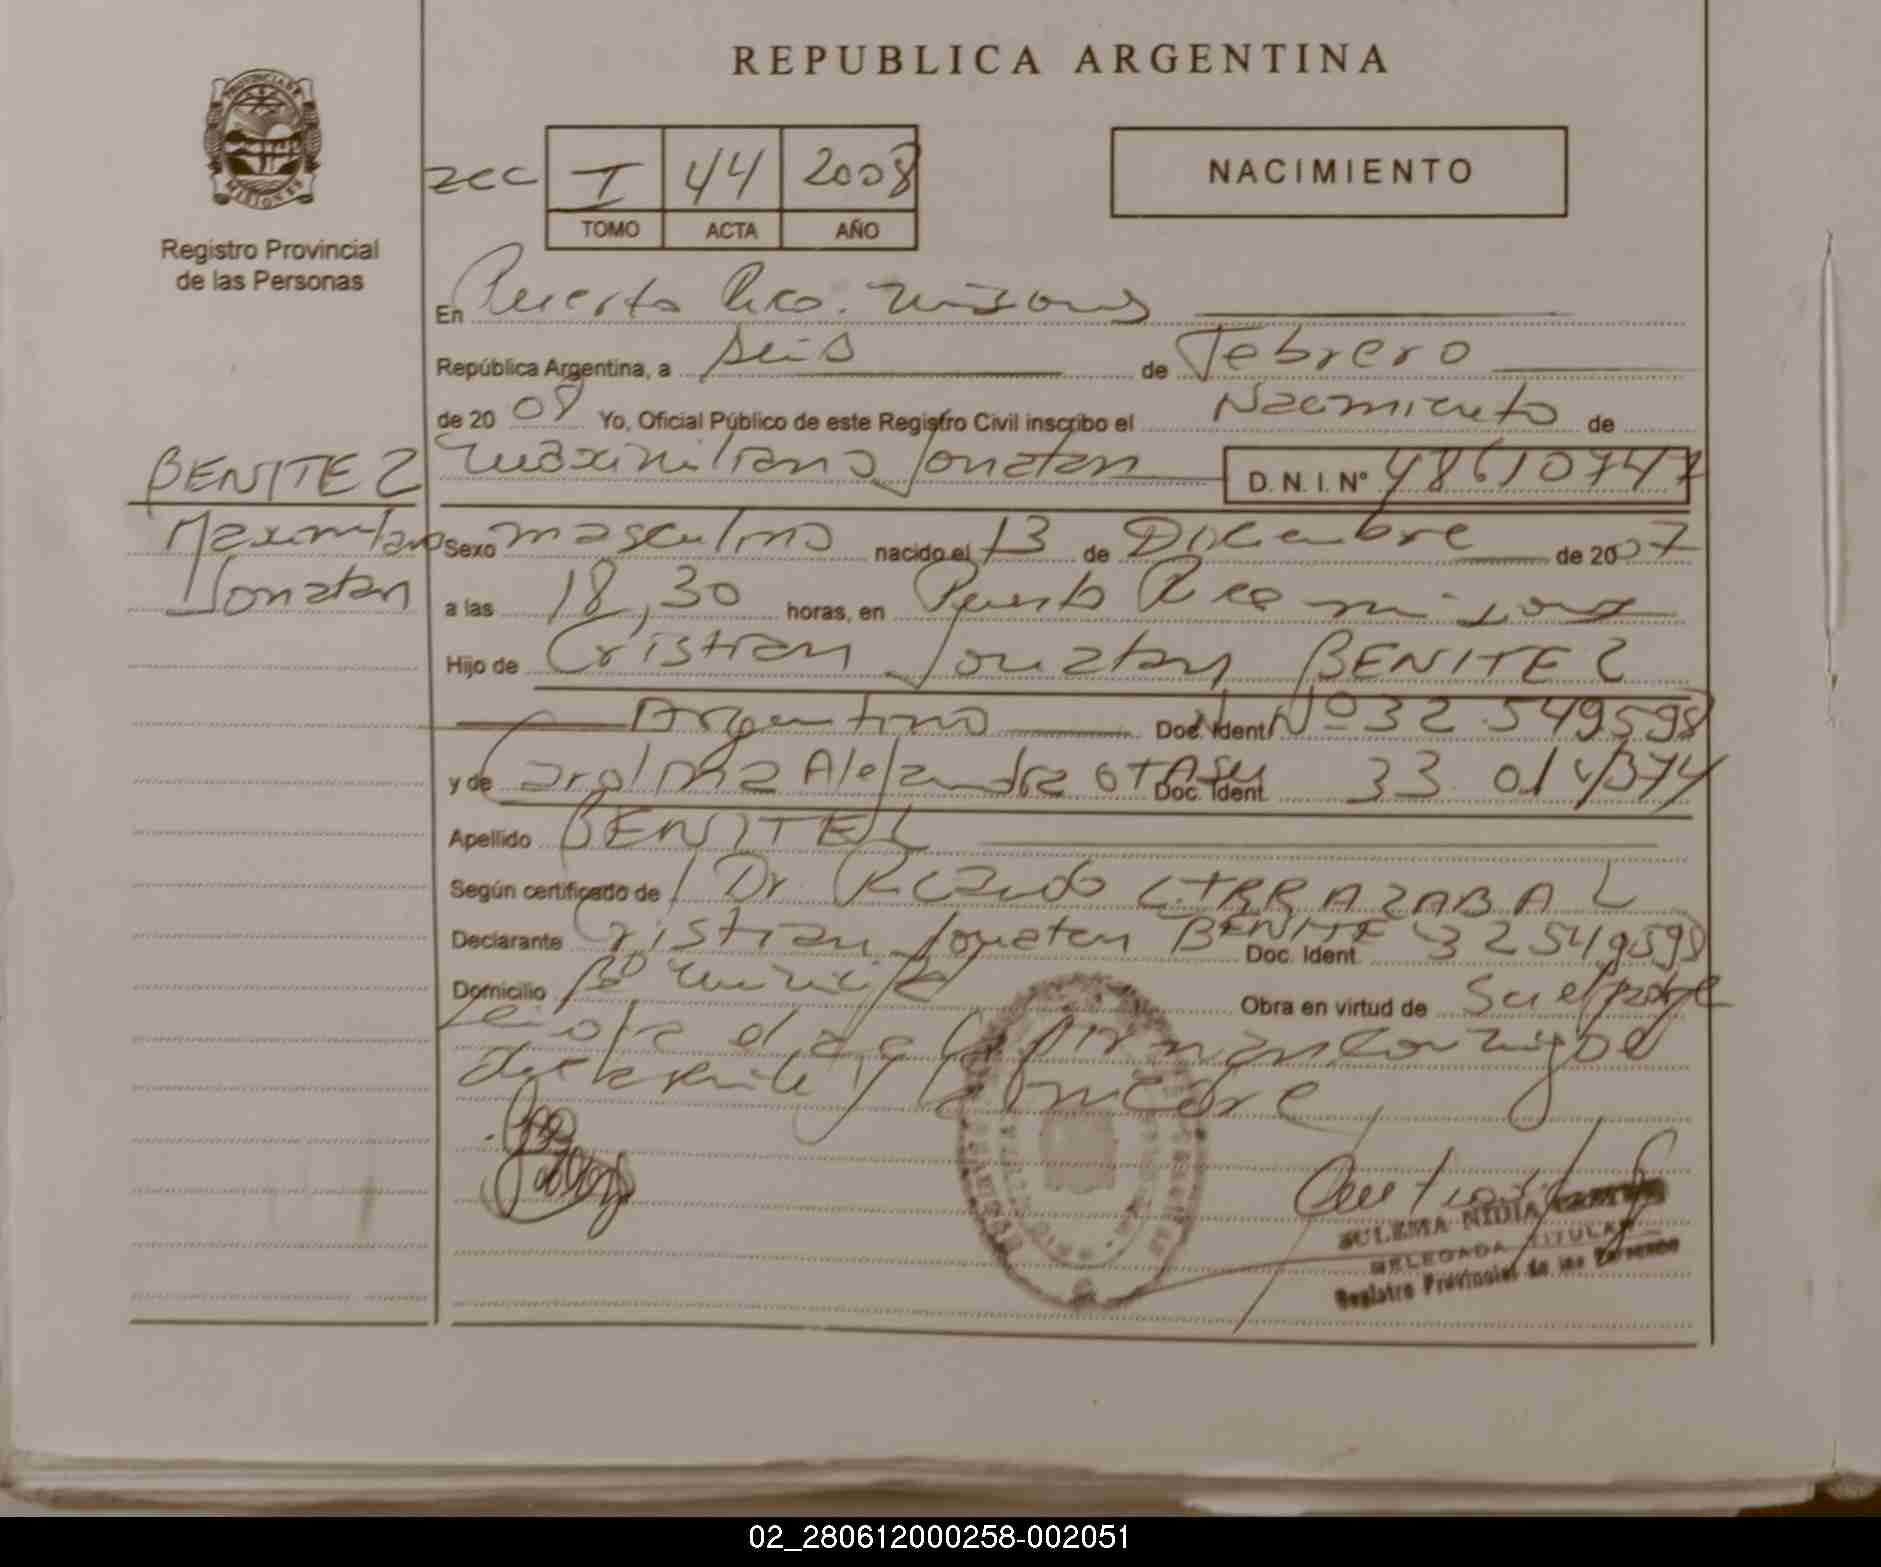 REPUBLICA ARGENTINA
I 44 2008
TOMO ACTA AÑO
NACIMIENTO
PROVINCIA DE
MISIONES
Registro Provincial
de las Personas
BENITEZ
Maximiliano
Jonatan
En Puerto Rico. Misiones
República Argentina, a seis de Febrero
de 20 08 Yo, Oficial Público de este Registro Civil inscribo el Nacimiento de
Maximiliano Jonatan D. N. I. Nº 48610747
Sexo masculino nacido el 13 de Diciembre de 2007
a las 18,30 horas, en Puerto Rico misiones
Hijo de Cristian Jonatan BENITEZ
Argentino Doc. Ident. Nº 32.549598
y de Carolina Alejandra Doc. Ident. 33.014374
Apellido BENITEZ
Según certificado de Dr. Ricardo
Declarante Cristian Jonatan BENITE Doc. Ident. 32549598
Domicilio Bº Obra en virtud de
Leida el acta firman conmigo el
declarante y la madre
SULEMA NIDIA
DELEGADA TITULAR
Registro Provincial de las Personas
02_280612000258-002051